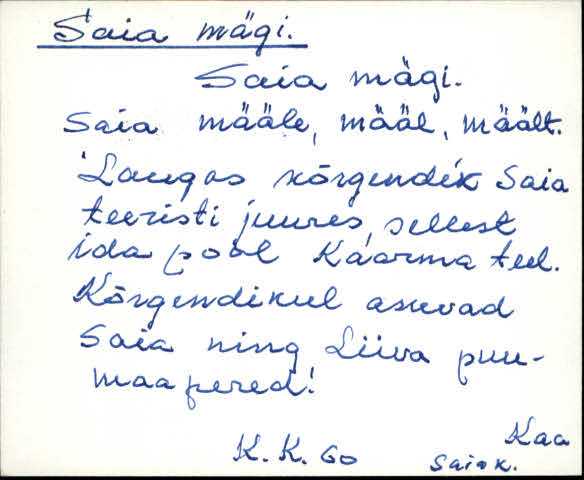 Saia mägi.
Saia mägi.
Saia määle, määl, mäält.
Laugas kõrgendik Saia
teeristi juures, sellest
ida pool Kaarma teel.
Kõrgendikul asuvad
Saia ning Liiva puu-
maapered!
K. K. 60
Kaa
Saia k.